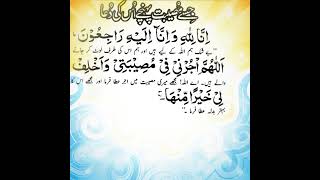 جسے مصیبت پہنچے اُس کی دُعا
اِنَّا لِلّٰهِ وَاِنَّاۤ اِلَيْهِ رَاجِعُوْنَ،
بے شک ہم اللہ کے لیے ہیں اور ہم اس کی طرف لوٹ کر جانے
اَللّٰهُمَّ اْجُرْنِيْ فِيْ مُصِيْبَتِيْ وَاَخْلِفْ
والے ہیں۔ اے اللہ! مجھے میری مصیبت میں اجر عطا فرما اور مجھے اس کا
لِيْ خَيْرًا مِّنْهَا۔
بہتر بدلہ عطا فرما۔